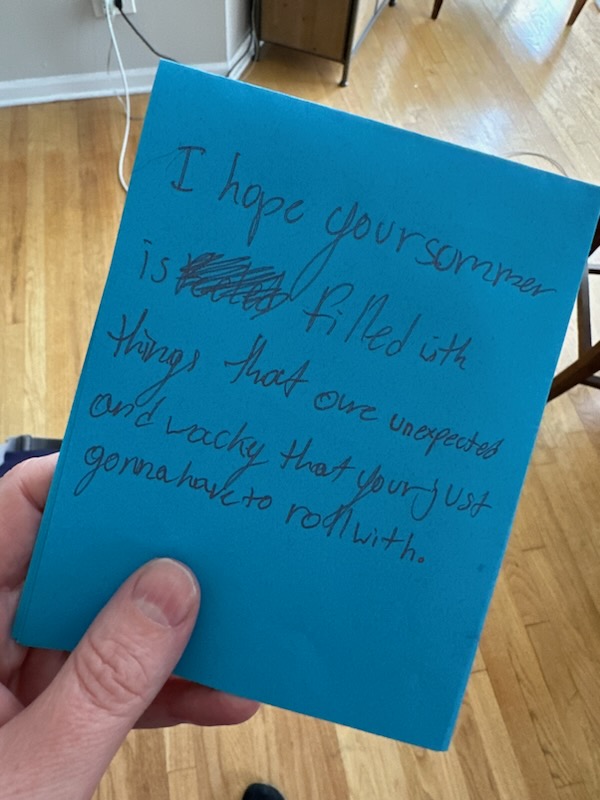 I hope your sommer
is filled with
things that are unexpected
and wacky that your just
gonna have to roll with.